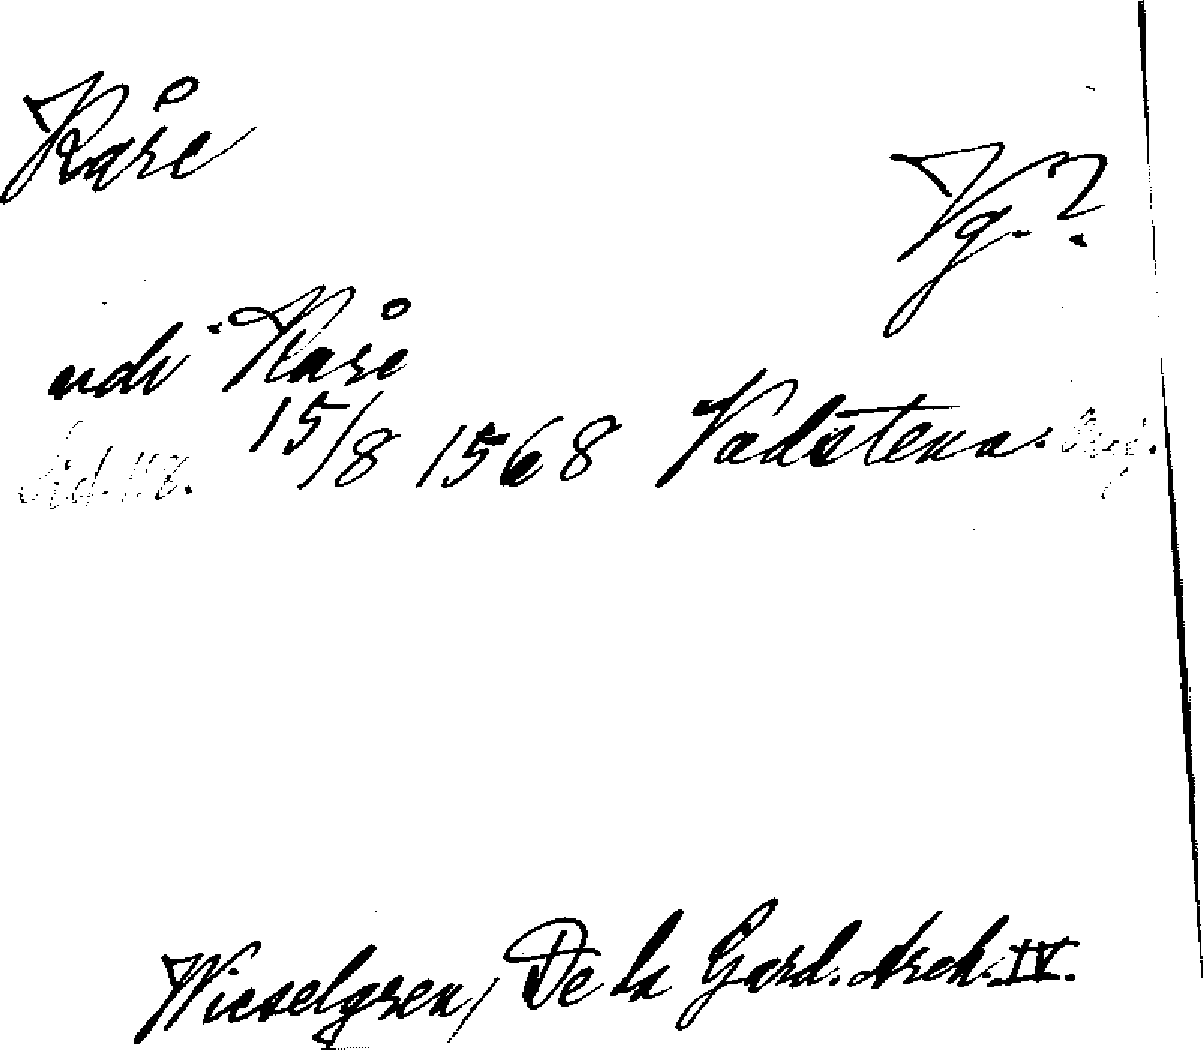 Kåre
Vg.?
udi Kåre
15/8 1568 Vadstena.
Wieselgren, De la Gard. Arch. IV.